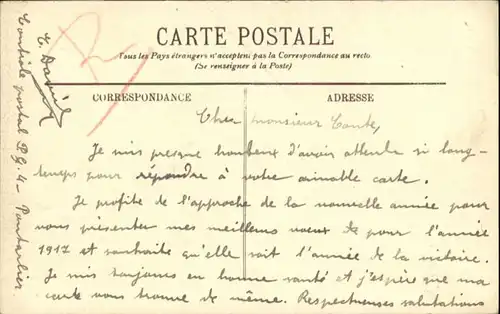 CARTE POSTALE
Tous les Pays étrangers n'acceptent pas la Correspondance au recto
(Se renseigner à la Poste)
CORRESPONDANCE
ADRESSE
Cher monsieur Conte,
Je suis presque honteux d'avoir attendu si long-
temps pour répondre à votre aimable carte.
Je profite de l'approche de la nouvelle année pour
vous présenter mes meilleurs voeux et pour l'année
1917 et souhaite qu'elle soit l'année de la victoire.
Je suis toujours en bonne santé et j'espère que ma
carte vous trouve de même. Respectueuses salutations
E. David
Contrôle postal P.G. 4 - Pontarlier.